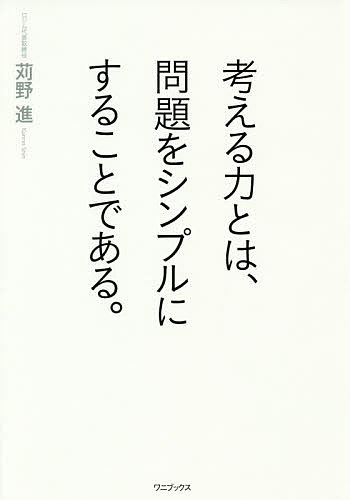 考える力とは、
問題をシンプルに
することである。
苅野 進
Karino Shin
ワニブックス